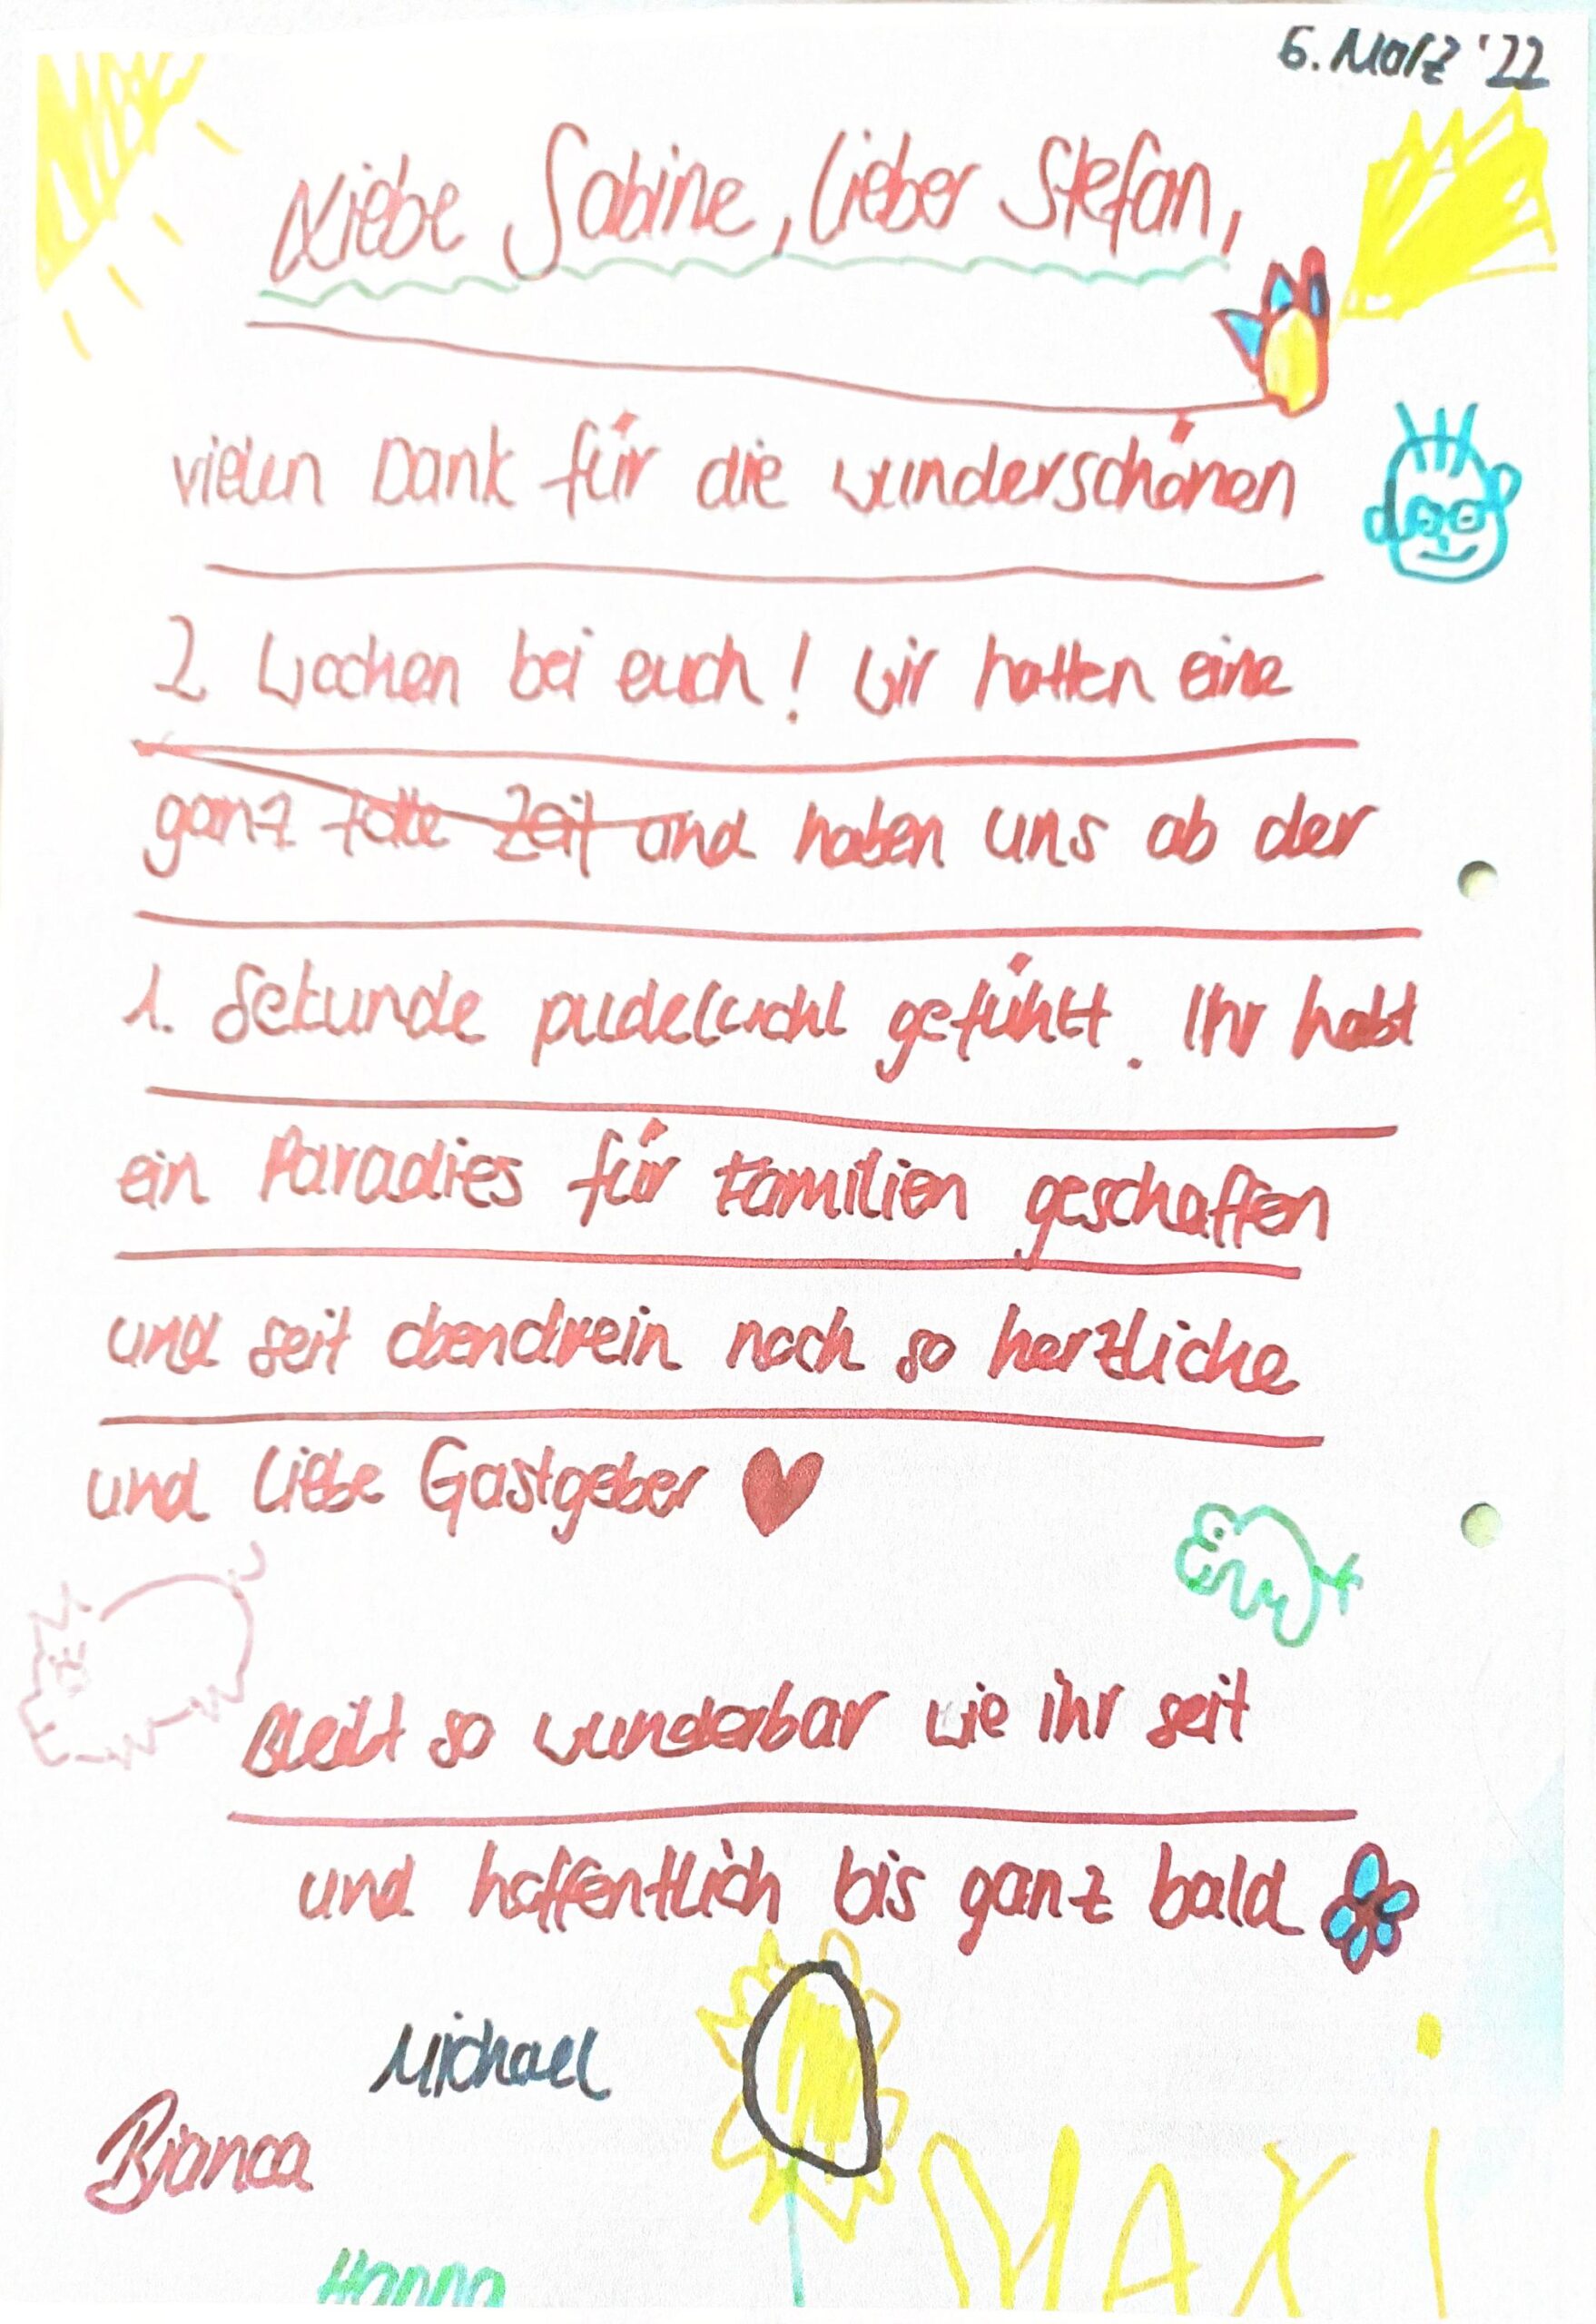 6. März '22
Liebe Sabine, lieber Stefan,
vielen Dank für die wunderschönen
2 Wochen bei euch! Wir hatten eine
ganz tolle Zeit und haben uns ab der
1. Sekunde pudelwohl gefühlt. Ihr habt
ein Paradies für Familien geschaffen
und seit obendrein noch so herzliche
und liebe Gastgeber ♥
Bleibt so wunderbar wie ihr seit
und hoffentlich bis ganz bald
Michael
Bianca
MAXi
Hanna